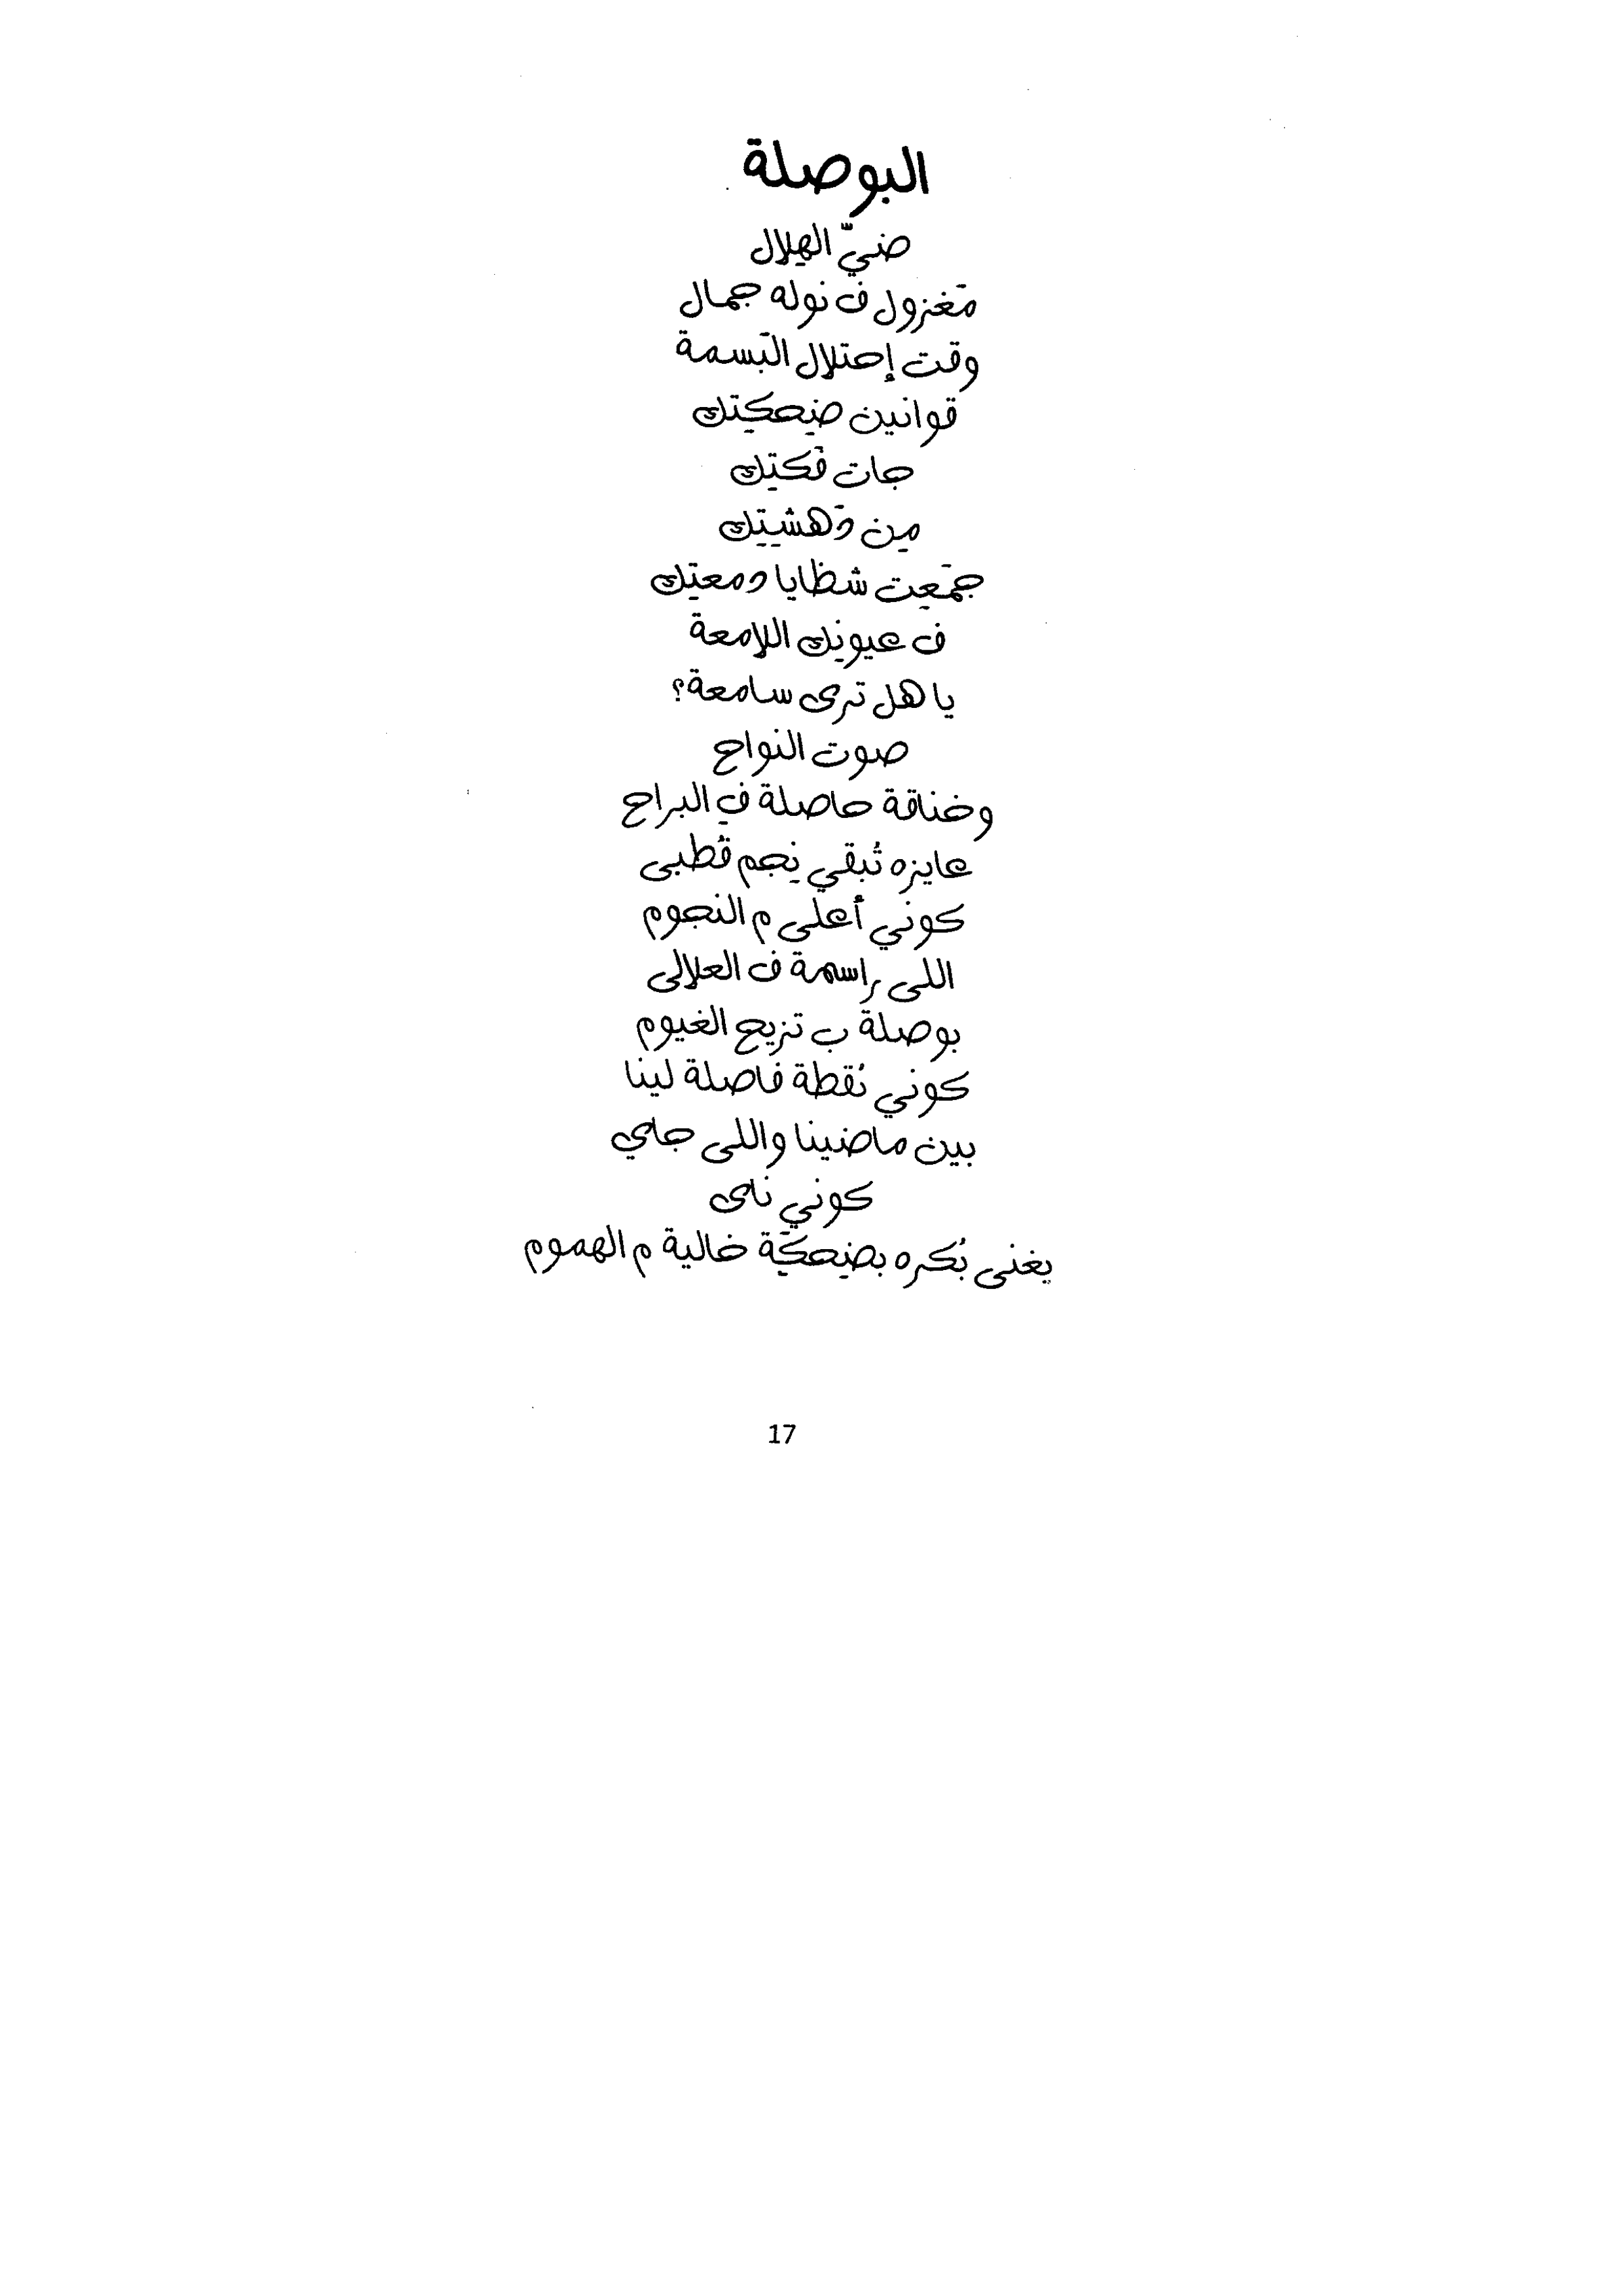 البوصلة
ضيّ الهِلال
مَغزول ف نوله جمال
وقت إحتلال البَسمة
قوانين ضِحكِتك
جات فَكتِك
مِن دَهشِتِك
جمَعِت شظايا دمعتِك
ف عيونِك اللامعة
يا هل ترى سامعة؟
صوت النواح
وخناقة حاصلة فِ البراح
عايزه تُبقي نِجم قُطبى
كوني أعلى م النجوم
اللى راسمة ف العلالى
بوصلة ب تزيح الغيوم
كوني نُقطة فاصلة لينا
بين ماضينا واللى جاي
كوني ناى
يغنى بُكره بضِحكَة خالية م الهموم
17